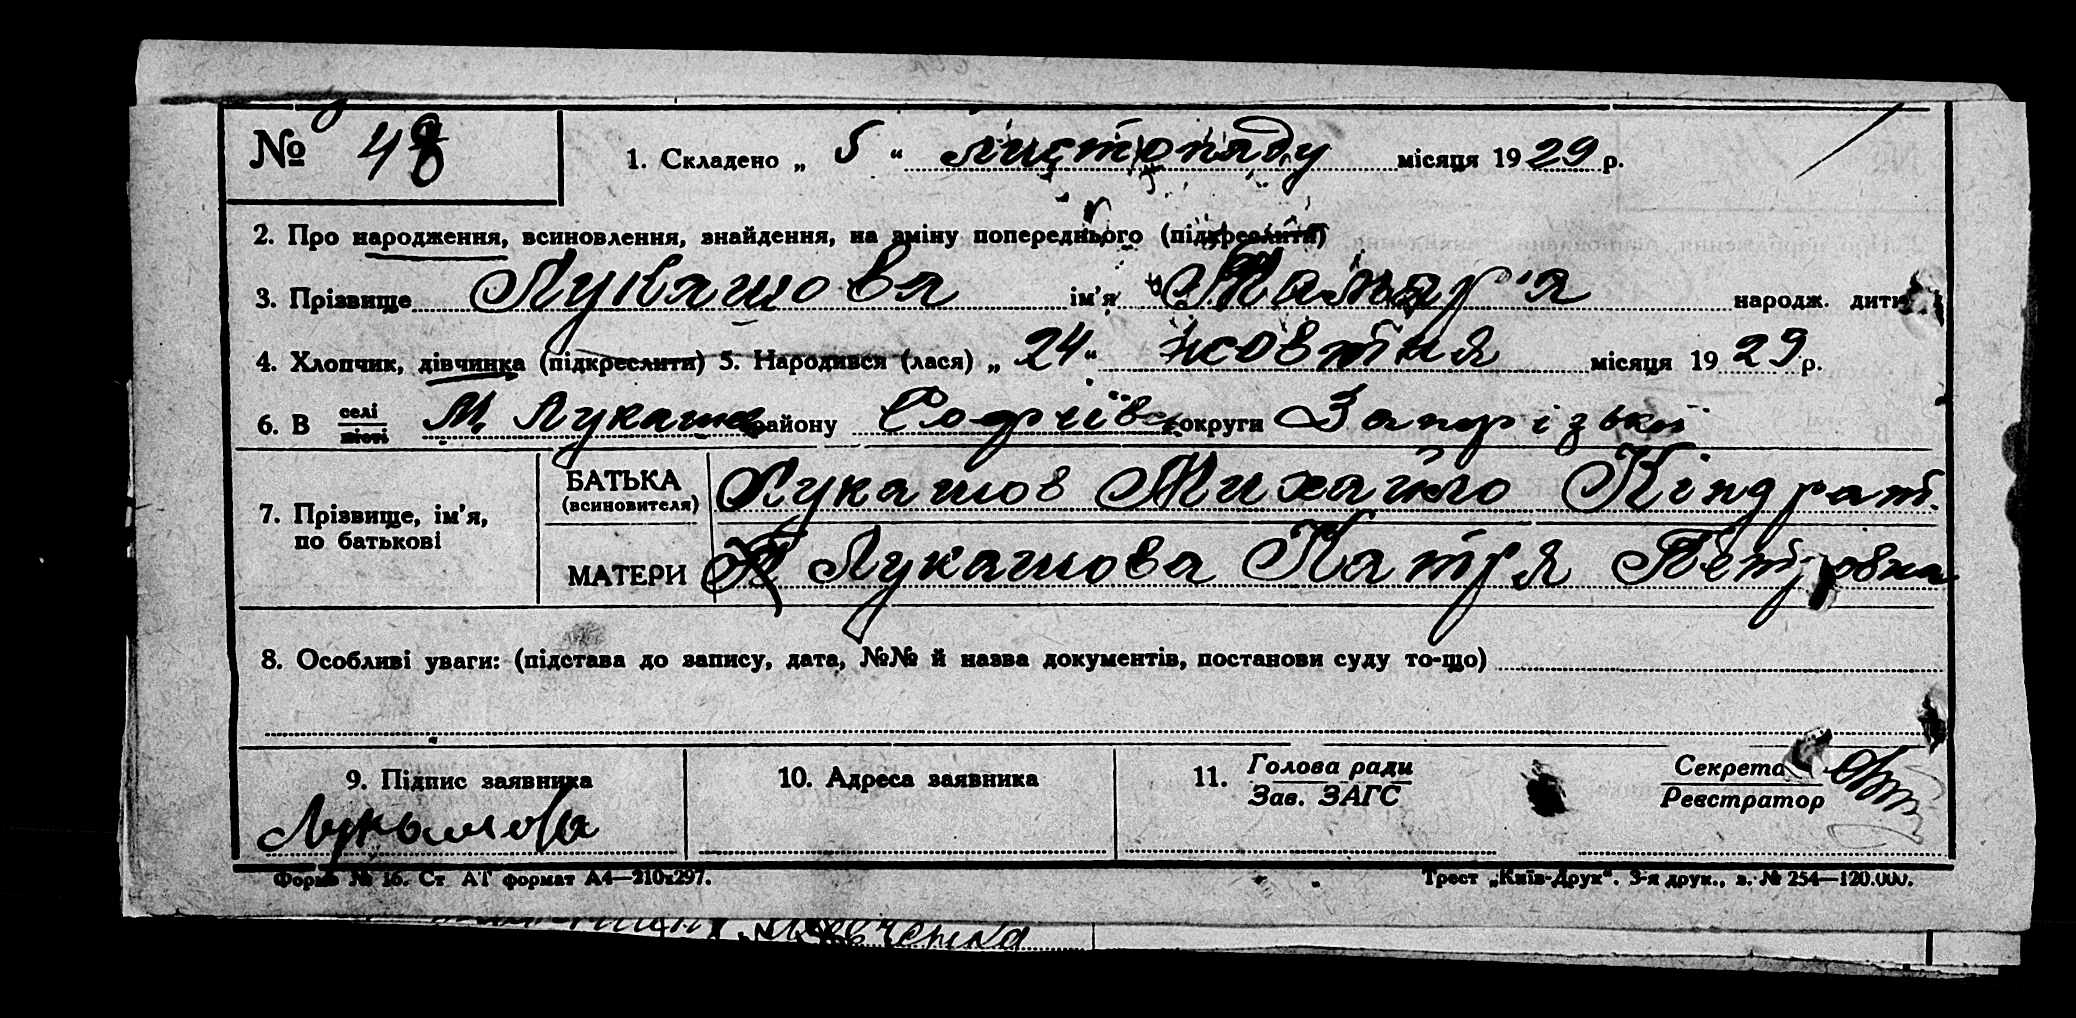 № 48 1. Складено „ 5 “ листопаду місяця 1929 р.
2. Про народження, всиновлення, знайдення, на зміну попереднього (підкреслити)
3. Прізвище Лукашова ім'я народж. дити
4. Хлопчик, дівчинка (підкреслити) 5. Народився (лася) „ 24 “ жовтня місяця 1929 р.
6. В селі місті М. Лукаше району Софіївс округи Запорізької
7. Прізвище, ім'я, по батькові
БАТЬКА (всиновителя) Лукашов Михайло Кіндрат.
МАТЕРИ Лукашова Катря Петровна
8. Особливі уваги: (підстава до запису, дата, №№ й назва документів, постанови суду то-що)
9. Підпис заявника 10. Адреса заявника 11. Голова ради Зав. ЗАГС Секрета Реєстратор
Лукашова
Форма № 16. Ст АТ формат А4—210х297. Трест „Київ-Друк“. 3-я друк., з. № 254—120.000.